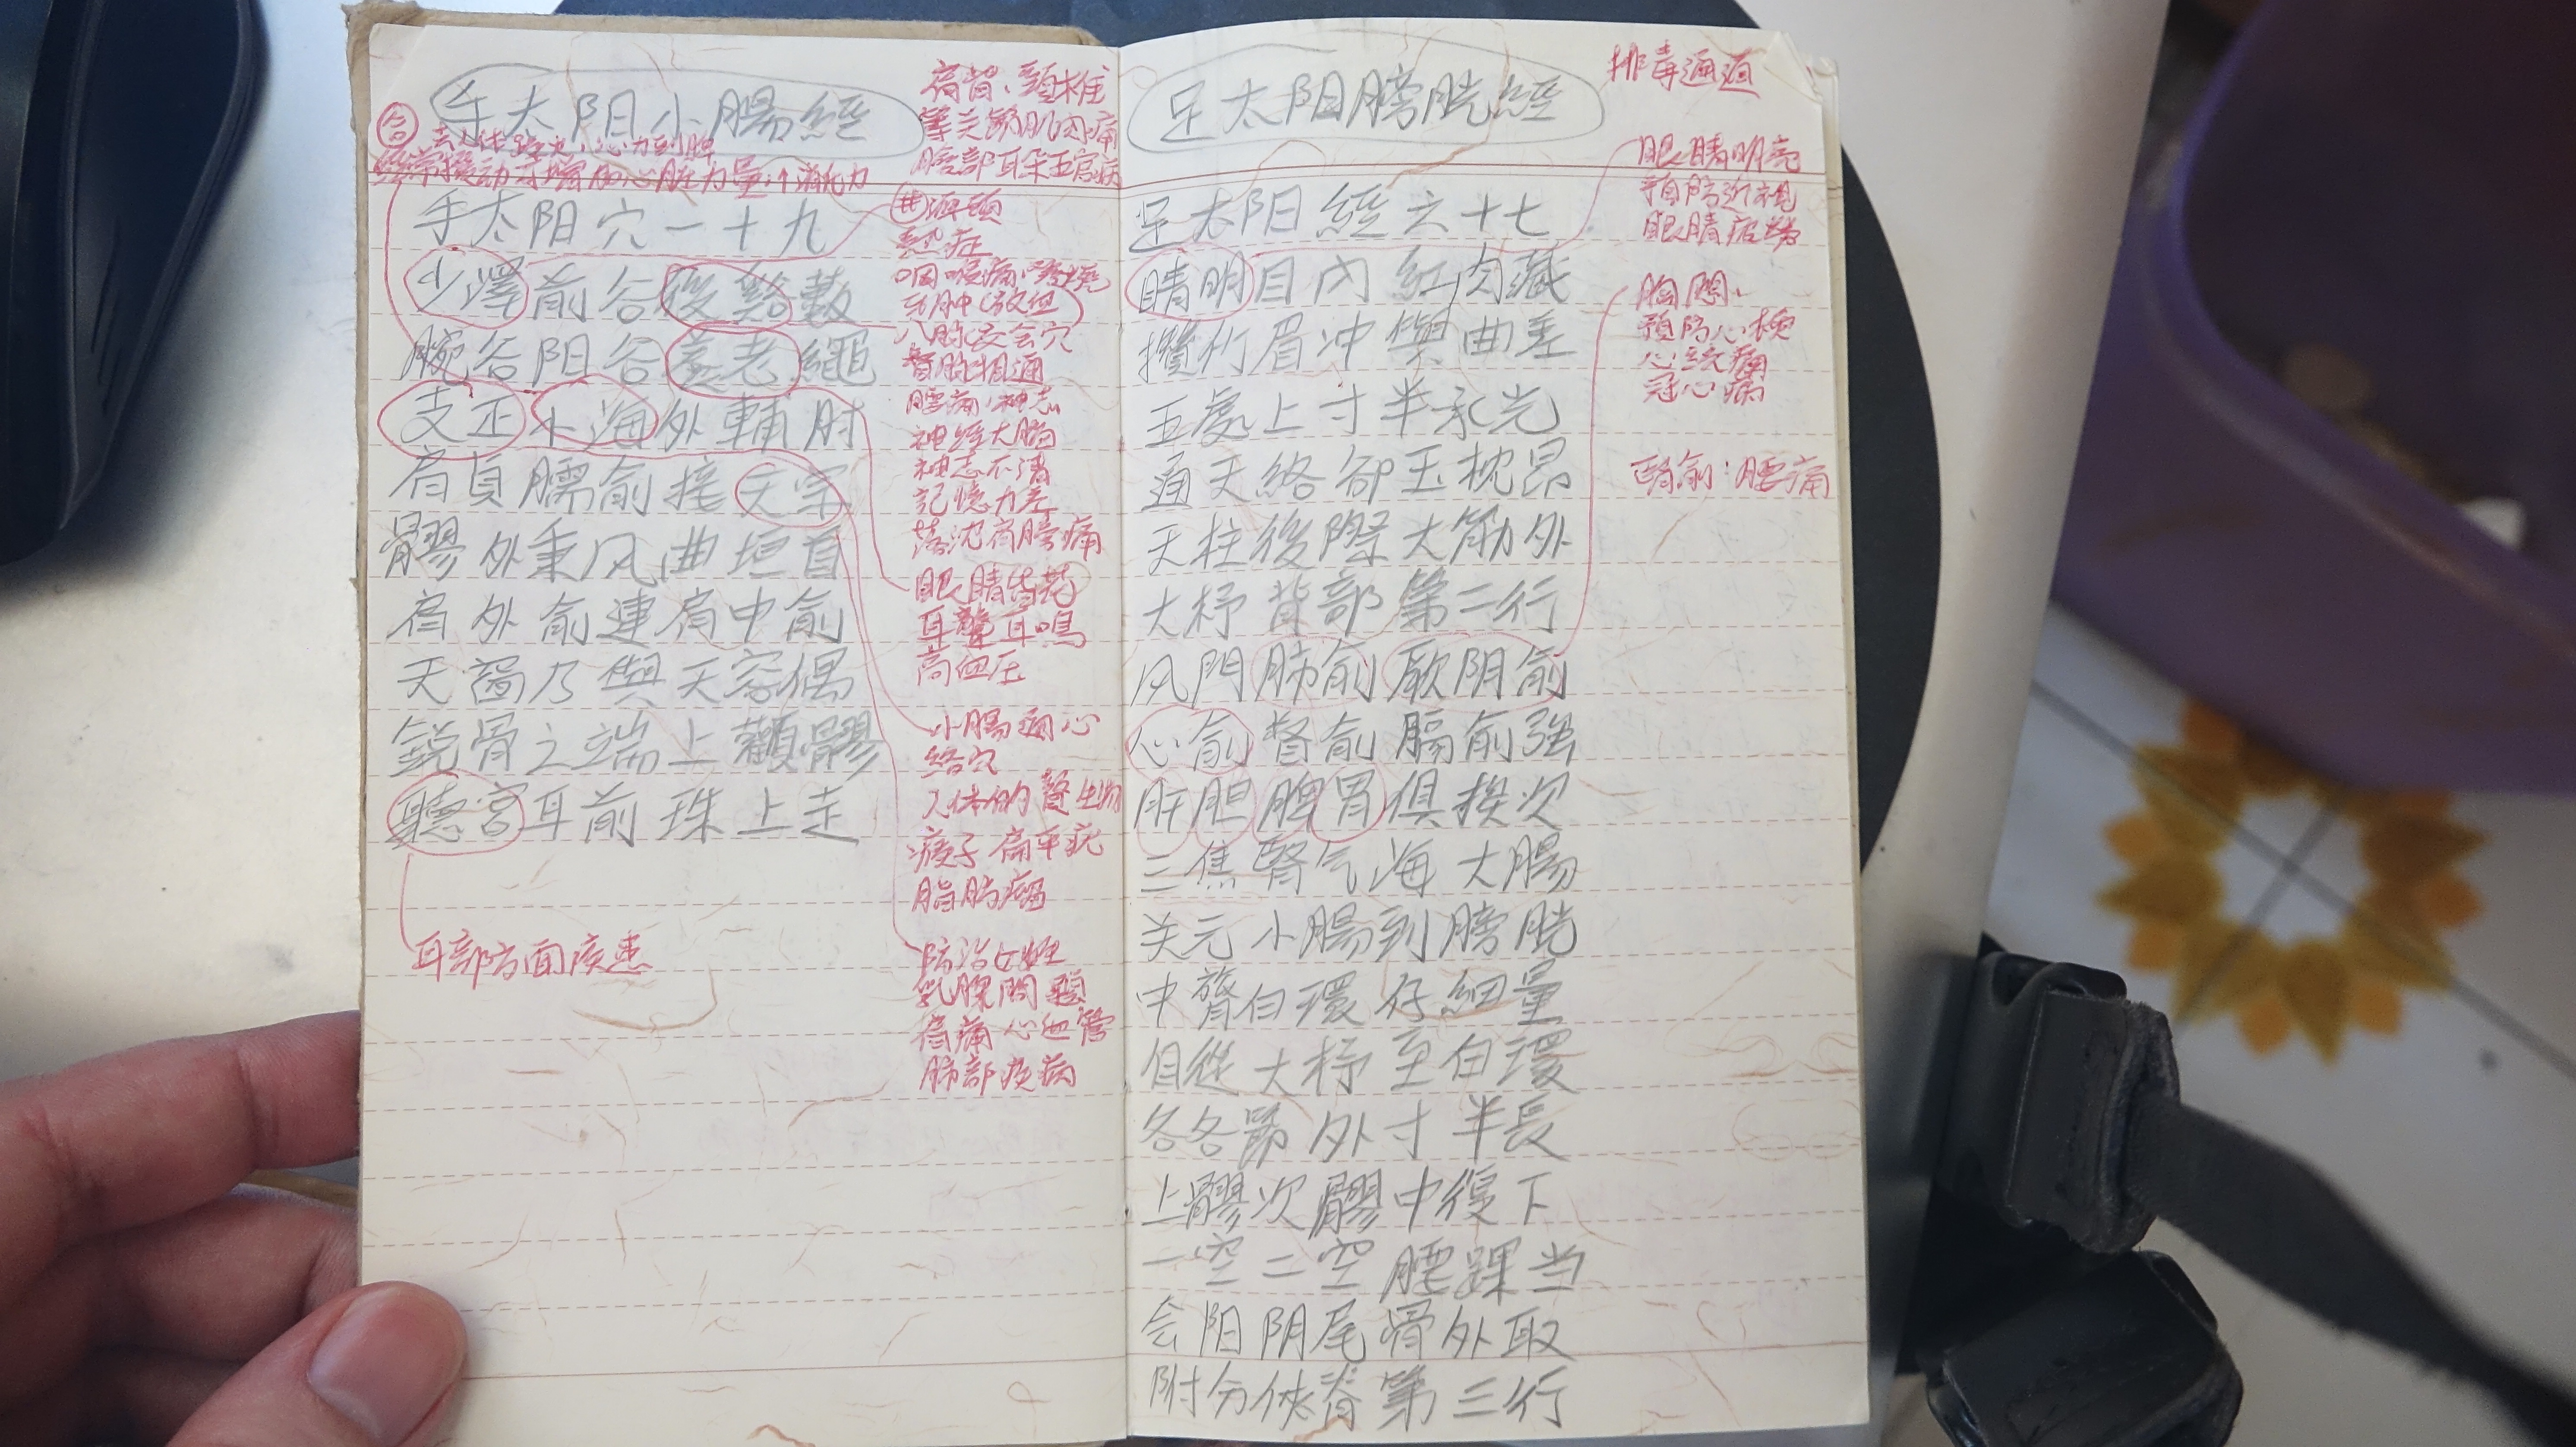 手太阳小腸經
合
經常撥動可增加心脏力量
手太阳穴一十九
少澤前谷後谿數
腕谷阳谷養老繩
支正小海外輔肘
肩貞臑俞接天宗
髎外秉风曲垣首
肩外俞連肩中俞
天窗乃與天容偶
銳骨之端上顴髎
聽宮耳前珠上走
耳部方面疾患
肩背、頸椎
肌肉痛
臉部耳朵五官病
井
熱症
咽喉痛
八脉交会穴
督脉相通
腰痛、神志
神經大腦
神志不清
記憶力差
落沈肩膀痛
眼睛昏花
耳聾耳鳴
高血压
小腸通心
絡穴
人体的贅生物
瘊子 扁平疣
脂肪瘤
防治女性
乳腺問題
肩痛心血管
肺部疾病
足太阳膀胱經
排毒通道
足太阳經六十七
睛明目內紅肉藏
攢竹眉冲與曲差
五處上寸半承光
通天絡卻玉枕昂
天柱後際大筋外
大杼背部第二行
风門肺俞厥阴俞
心俞督俞膈俞強
肝胆脾胃俱挨次
三焦腎气海大腸
关元小腸到膀胱
中膂白環仔細量
自從大杼至白環
各各節外寸半長
上髎次髎中復下
一空二空腰踝当
会阳阴尾骨外取
附分俠脊第三行
眼睛明亮
預防近視
眼睛疲勞
胸悶、
預防心梗
心絞痛
冠心病
腎俞：腰痛